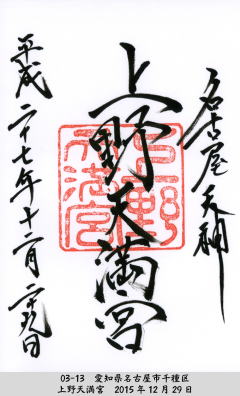 名古屋天神
上野天満宮
平成二十七年十二月二十九日
上野天満宮
03-13 愛知県名古屋市千種区
上野天満宮 2015年12月29日